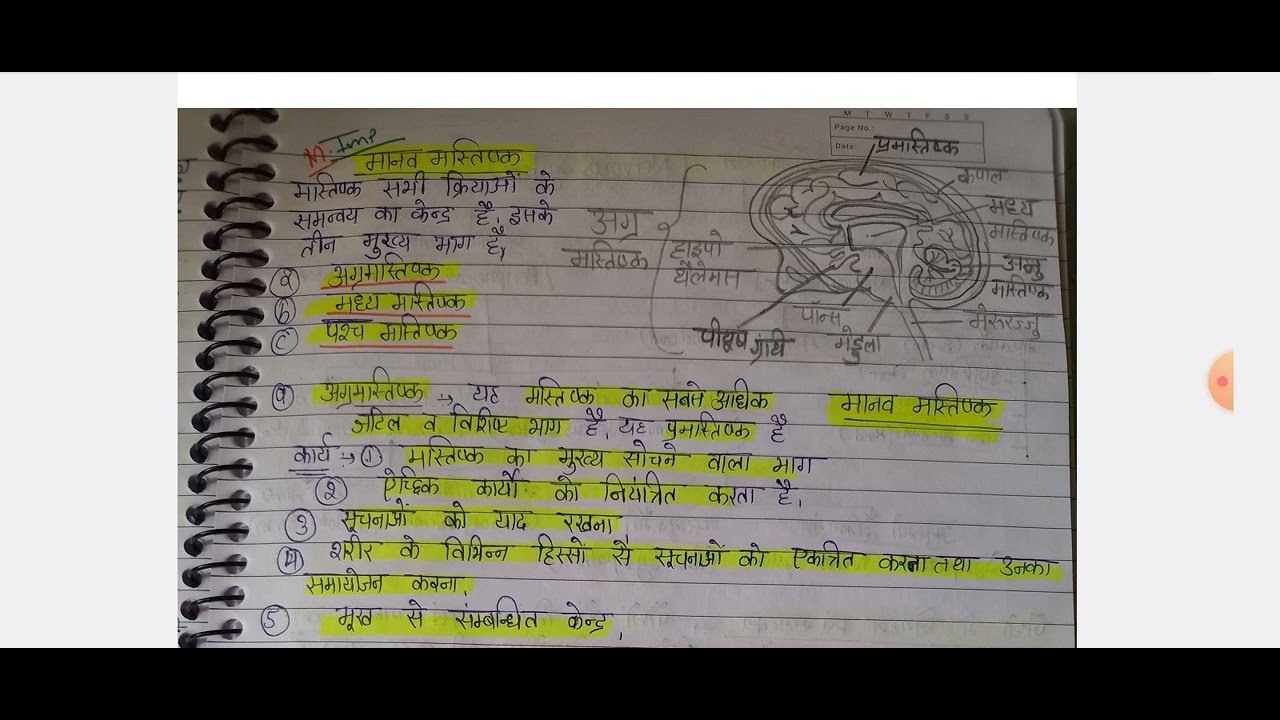 M. Imp
मानव मस्तिष्क
मास्तिष्क सभी क्रियाओं के
समन्वय का केन्द्र है, इसके
तीन मुख्य भाग है,
(a) अग्रमास्तिष्क
(b) मध्य मास्तिष्क
(c) पश्च मास्तिष्क
M T W T F S S
Page No.:
Date:
प्रमास्तिष्क
कपाल
मध्य
मास्तिष्क
अनु
मास्तिष्क
मेरुरज्जु
अग्र
मस्तिष्क
हाइपो
थैलेमस
पॉन्स
पीयूष ग्रंथि
मेडुला
मानव मस्तिष्क
(a) अग्रमास्तिष्क → यह मस्तिष्क का सबसे अधिक
जटिल व विशिष्ट भाग है, यह प्रमास्तिष्क है
कार्य → (1) मास्तिष्क का मुख्य सोचने वाला भाग
(2) ऐच्छिक कार्यो को नियंत्रित करता है,
(3) सूचनाओं को याद रखना,
(4) शरीर के विभिन्न हिस्सों से सूचनाओं को एकत्रित करना तथा उनका
समायोजन करना,
(5) भूख से संम्बन्धित केन्द्र,